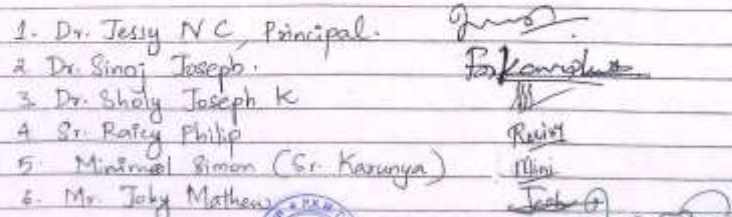 1. Dr. Jessy N C, Principal.
2 Dr. Sinoj Joseph.
3. Dr. Sholy Joseph K
4 Sr. Raicy Philip
5. Minimol Simon (Sr. Karunya) Mini
6. Mr. Joby Mathew